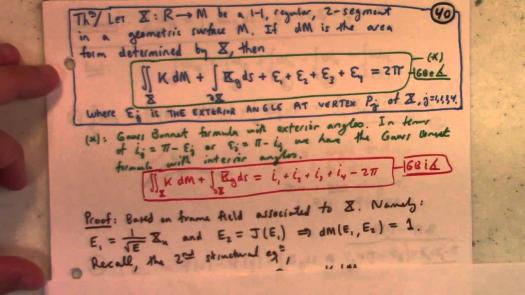 40
Thm/ Let X : R → M be a 1-1, regular, 2-segment
in a geometric surface M. If dM is the area
form determined by X, then
(*)
∬_X K dM + ∫_∂X K_g ds + ε₁ + ε₂ + ε₃ + ε₄ = 2π
GBe∡
where ε_j is the exterior angle at vertex P_j of X, j=1,2,3,4.
(*): Gauss Bonnet formula with exterior angles. In terms
of i_j = π - ε_j or ε_j = π - i_j we have the Gauss Bonnet
formula with interior angles.
∬_X K dM + ∫_∂X K_g ds = i₁ + i₂ + i₃ + i₄ - 2π
GBi∡
Proof: Based on frame field associated to X. Namely:
E₁ = 1/√E X_u and E₂ = J(E₁) ⇒ dM(E₁, E₂) = 1.
Recall, the 2nd structural eqⁿ,